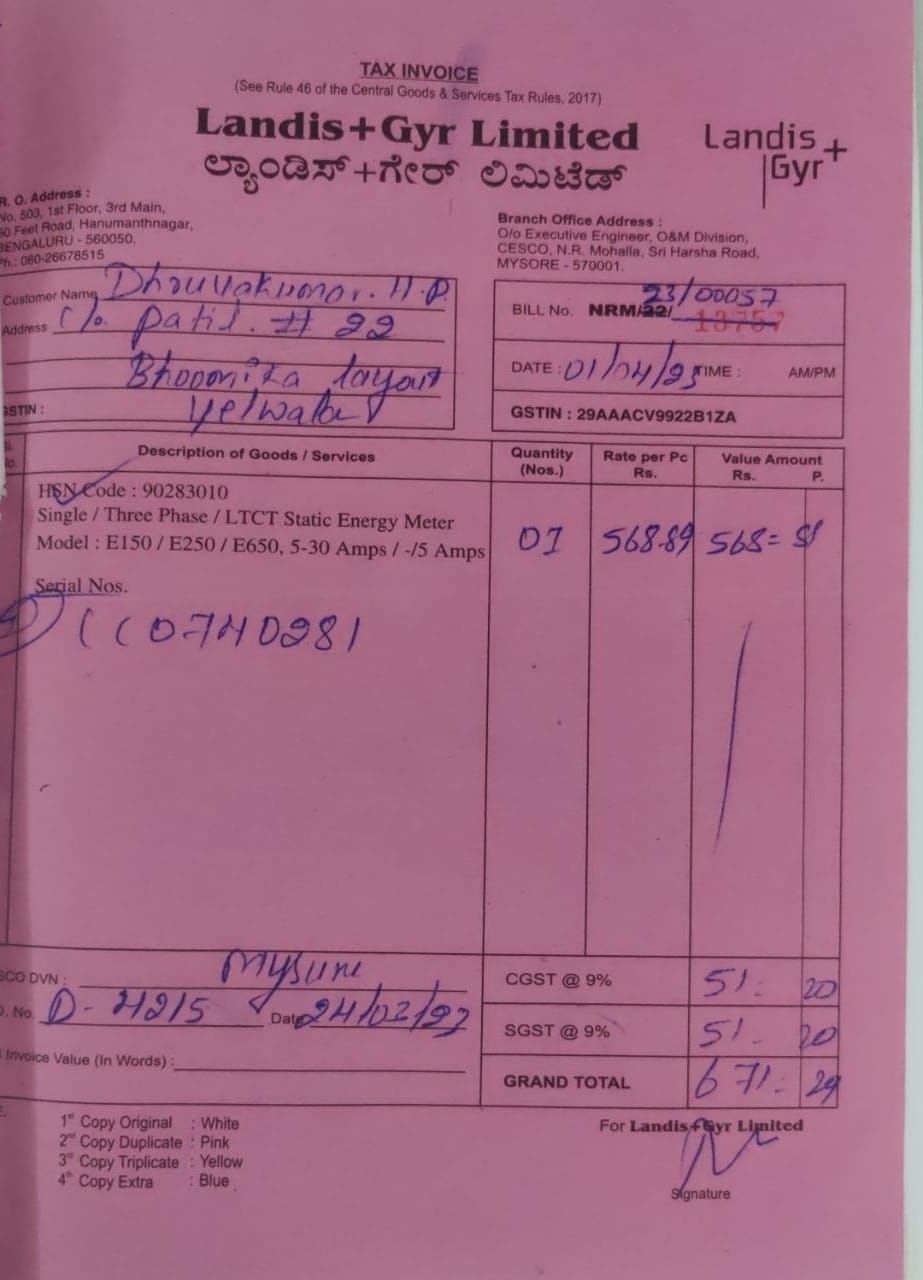 TAX INVOICE
(See Rule 46 of the Central Goods & Services Tax Rules, 2017)
Landis+Gyr Limited
ಲ್ಯಾಂಡಿಸ್+ಗೇರ್ ಲಿಮಿಟೆಡ್
Landis+
Gyr
R. O. Address :
No. 503, 1st Floor, 3rd Main,
50 Feet Road, Hanumanthnagar,
BENGALURU - 560050.
Ph.: 080-26678515
Branch Office Address :
O/o Executive Engineer, O&M Division,
CESCO, N.R. Mohalla, Sri Harsha Road,
MYSORE - 570001.
Customer Name Dhruvakumar. H.P.
Address C/o patil. # 22
layout
GSTIN :
BILL No. NRM/22/ 23/00057
13757
DATE : 01/04/23 TIME : AM/PM
GSTIN : 29AAACV9922B1ZA
Description of Goods / Services
Quantity (Nos.)
Rate per Pc Rs.
Value Amount Rs. P.
HSN Code : 90283010
Single / Three Phase / LTCT Static Energy Meter
Model : E150 / E250 / E650, 5-30 Amps / -/5 Amps
01 568.89 568=
Serial Nos.
CC0740281
SCO DVN : Mysuru
O. No. D- 4215 Date 24/03/23
Invoice Value (In Words) :
CGST @ 9% 51 20
SGST @ 9% 51 20
GRAND TOTAL 671 29
1st Copy Original : White
2nd Copy Duplicate : Pink
3rd Copy Triplicate : Yellow
4th Copy Extra : Blue
For Landis+Gyr Limited
Signature